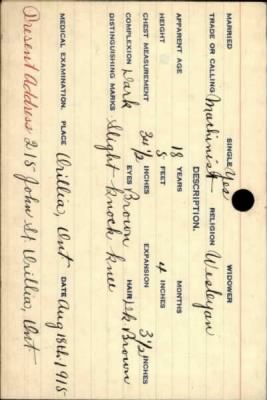 MARRIED SINGLE Yes WIDOWER
TRADE OR CALLING Machinist RELIGION Wesleyan
DESCRIPTION.
APPARENT AGE 18 YEARS MONTHS
HEIGHT 5 FEET 4 INCHES
CHEST MEASUREMENT 34½ INCHES EXPANSION 3½ INCHES
COMPLEXION Dark EYES Brown HAIR Dk Brown
DISTINGUISHING MARKS Slight knock knee
MEDICAL EXAMINATION. PLACE Orillia, Ont DATE Aug 18th, 1915
Present Address 215 John St. Orillia, Ont